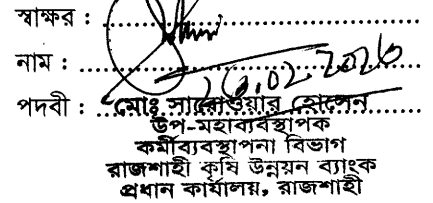 স্বাক্ষর :
নাম : 26.02.2026
পদবী : মোঃ সারোওয়ার হোসেন
উপ-মহাব্যবস্থাপক
কর্মীব্যবস্থাপনা বিভাগ
রাজশাহী কৃষি উন্নয়ন ব্যাংক
প্রধান কার্যালয়, রাজশাহী